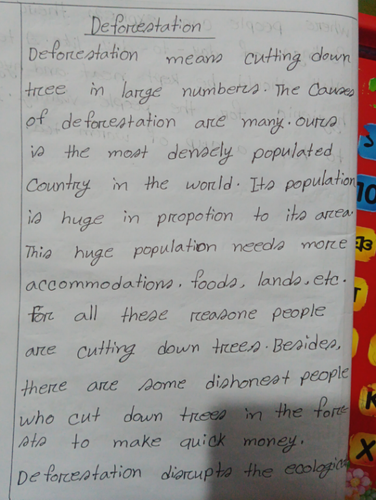 Deforestation
Deforestation means cutting down
tree in large numbers. The Causes
of deforestation are many. ours
is the most densely populated
Country in the world. Its population
is huge in propotion to its area
This huge population needs more
accommodations, foods, lands, etc.
for all these reasone people
are cutting down trees. Besides,
there are some dishonest people
who cut down trees in the fore-
sts to make quick money.
Deforestation disrupts the ecological
10
K
X